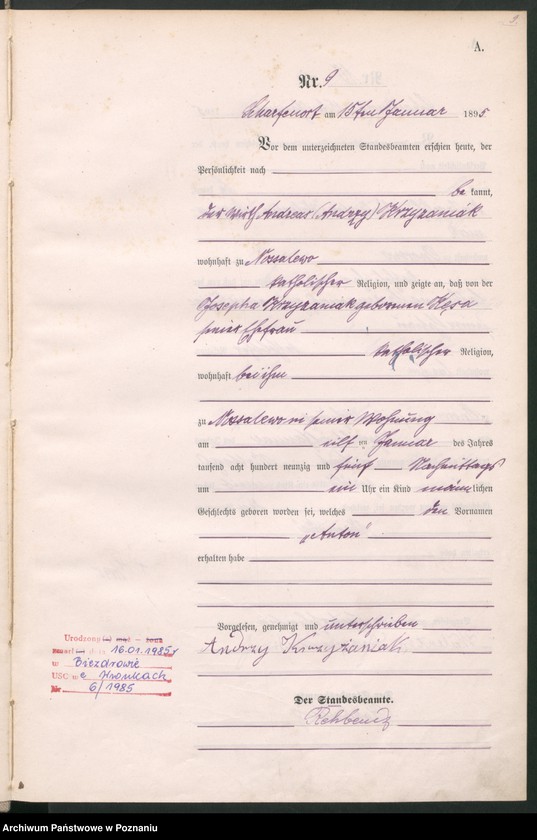 9.
A.
Nr. 9
Scharfenort am 15ten Januar 1895
Vor dem unterzeichneten Standesbeamten erschien heute, der
Persönlichkeit nach
be kannt,
der Wirth Andreas (Andrzy) Krzyzaniak
wohnhaft zu
katholischer Religion, und zeigte an, daß von der
Josepha Krzyzaniak geborenen
seiner Ehefrau
katholischer Religion,
wohnhaft bei ihm
zu in seiner Wohnung
am eilf ten Januar des Jahres
tausend acht hundert neunzig und fünf Nachmittags
um ein Uhr ein Kind männlichen
Geschlechts geboren worden sei, welches den Vornamen
„Anton"
erhalten habe
Vorgelesen, genehmigt und unterschrieben
Andrzy Krzyżaniak
Der Standesbeamte.
Rehbendz
Urodzony
zmarł dnia 16.01.1985r
w Biezdrowie
USC w e Wronkach
Nr 6/1985
Archiwum Państwowe w Poznaniu